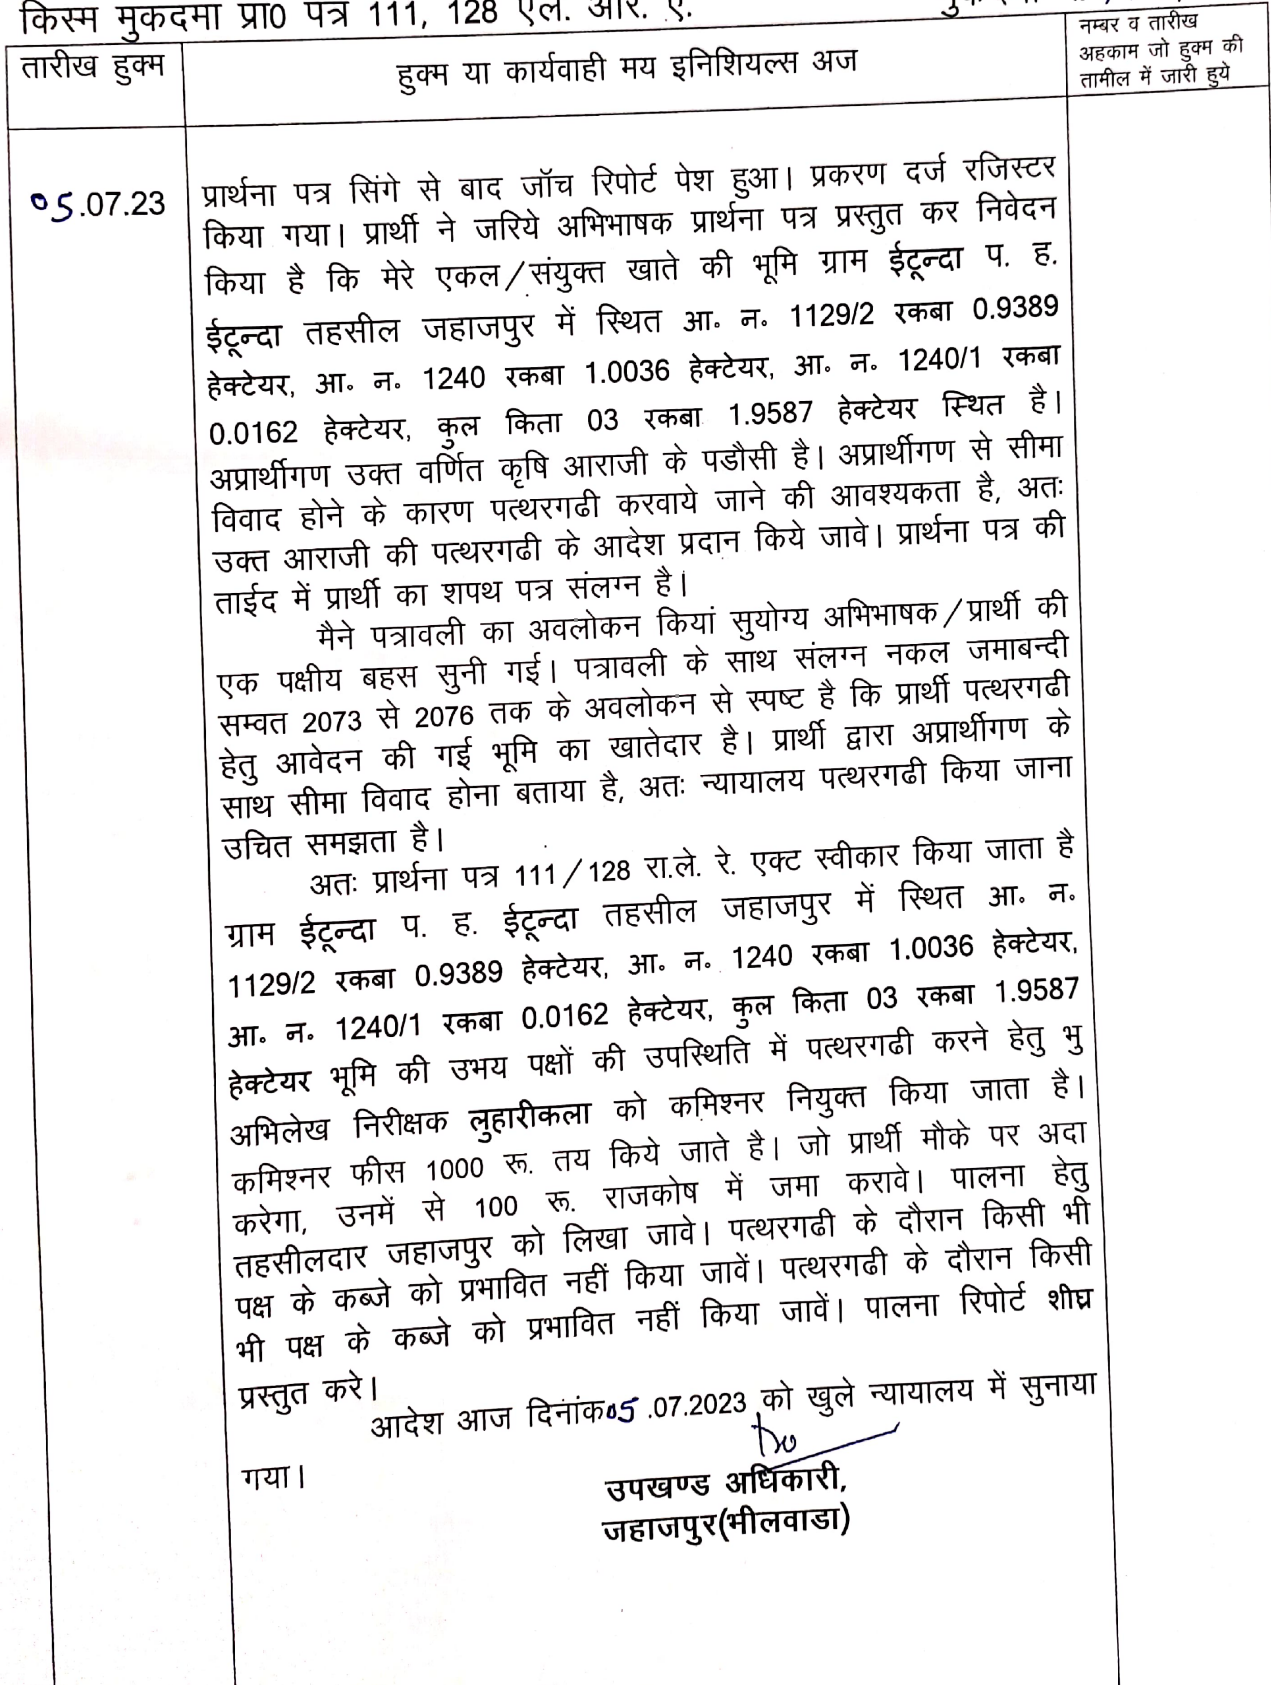 किस्म मुकदमा प्रा0 पत्र 111, 128 एल. आर. ए.
तारीख हुक्म
हुक्म या कार्यवाही मय इनिशियल्स अज
नम्बर व तारीख
अहकाम जो हुक्म की
तामील में जारी हुये
05.07.23
प्रार्थना पत्र सिंगे से बाद जॉच रिपोर्ट पेश हुआ। प्रकरण दर्ज रजिस्टर
किया गया। प्रार्थी ने जरिये अभिभाषक प्रार्थना पत्र प्रस्तुत कर निवेदन
किया है कि मेरे एकल/संयुक्त खाते की भूमि ग्राम ईटून्दा प. ह.
ईटून्दा तहसील जहाजपुर में स्थित आ. न. 1129/2 रकबा 0.9389
हेक्टेयर, आ. न. 1240 रकबा 1.0036 हेक्टेयर, आ. न. 1240/1 रकबा
0.0162 हेक्टेयर, कुल किता 03 रकबा 1.9587 हेक्टेयर स्थित है।
अप्रार्थीगण उक्त वर्णित कृषि आराजी के पडौसी है। अप्रार्थीगण से सीमा
विवाद होने के कारण पत्थरगढी करवाये जाने की आवश्यकता है, अतः
उक्त आराजी की पत्थरगढी के आदेश प्रदान किये जावे। प्रार्थना पत्र की
ताईद में प्रार्थी का शपथ पत्र संलग्न है।
मैने पत्रावली का अवलोकन कियां सुयोग्य अभिभाषक/प्रार्थी की
एक पक्षीय बहस सुनी गई। पत्रावली के साथ संलग्न नकल जमाबन्दी
सम्वत 2073 से 2076 तक के अवलोकन से स्पष्ट है कि प्रार्थी पत्थरगढी
हेतु आवेदन की गई भूमि का खातेदार है। प्रार्थी द्वारा अप्रार्थीगण के
साथ सीमा विवाद होना बताया है, अतः न्यायालय पत्थरगढी किया जाना
उचित समझता है।
अतः प्रार्थना पत्र 111/128 रा.ले. रे. एक्ट स्वीकार किया जाता है
ग्राम ईटून्दा प. ह. ईटून्दा तहसील जहाजपुर में स्थित आ. न.
1129/2 रकबा 0.9389 हेक्टेयर, आ. न. 1240 रकबा 1.0036 हेक्टेयर,
आ. न. 1240/1 रकबा 0.0162 हेक्टेयर, कुल किता 03 रकबा 1.9587
हेक्टेयर भूमि की उभय पक्षों की उपस्थिति में पत्थरगढी करने हेतु भु
अभिलेख निरीक्षक लुहारीकला को कमिश्नर नियुक्त किया जाता है।
कमिश्नर फीस 1000 रू. तय किये जाते है। जो प्रार्थी मौके पर अदा
करेगा, उनमें से 100 रू. राजकोष में जमा करावे। पालना हेतु
तहसीलदार जहाजपुर को लिखा जावे। पत्थरगढी के दौरान किसी भी
पक्ष के कब्जे को प्रभावित नहीं किया जावें। पत्थरगढी के दौरान किसी
भी पक्ष के कब्जे को प्रभावित नहीं किया जावें। पालना रिपोर्ट शीघ्र
प्रस्तुत करे।
आदेश आज दिनांक 05.07.2023 को खुले न्यायालय में सुनाया
गया।
उपखण्ड अधिकारी,
जहाजपुर(भीलवाडा)